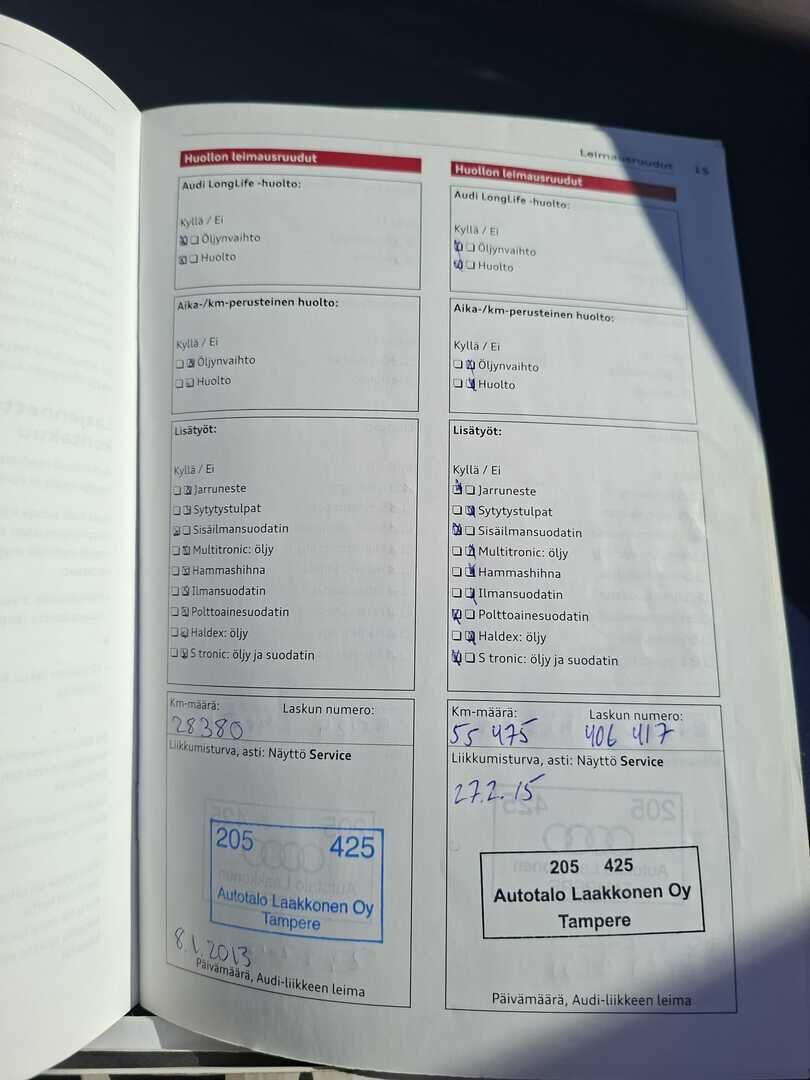 Leimausruudut 15
Huollon leimausruudut
Audi LongLife -huolto:
Kyllä / Ei
Öljynvaihto
Huolto
Aika-/km-perusteinen huolto:
Kyllä / Ei
Öljynvaihto
Huolto
Lisätyöt:
Kyllä / Ei
Jarruneste
Sytytystulpat
Sisäilmansuodatin
Multitronic: öljy
Hammashihna
Ilmansuodatin
Polttoainesuodatin
Haldex: öljy
S tronic: öljy ja suodatin
Km-määrä: Laskun numero:
28380
Liikkumisturva, asti: Näyttö Service
205 425
Autotalo Laakkonen Oy
Tampere
8.1.2013
Päivämäärä, Audi-liikkeen leima
Huollon leimausruudut
Audi LongLife -huolto:
Kyllä / Ei
Öljynvaihto
Huolto
Aika-/km-perusteinen huolto:
Kyllä / Ei
Öljynvaihto
Huolto
Lisätyöt:
Kyllä / Ei
Jarruneste
Sytytystulpat
Sisäilmansuodatin
Multitronic: öljy
Hammashihna
Ilmansuodatin
Polttoainesuodatin
Haldex: öljy
S tronic: öljy ja suodatin
Km-määrä: Laskun numero:
55 475 406 417
Liikkumisturva, asti: Näyttö Service
27.2.15
205 425
Autotalo Laakkonen Oy
Tampere
Päivämäärä, Audi-liikkeen leima